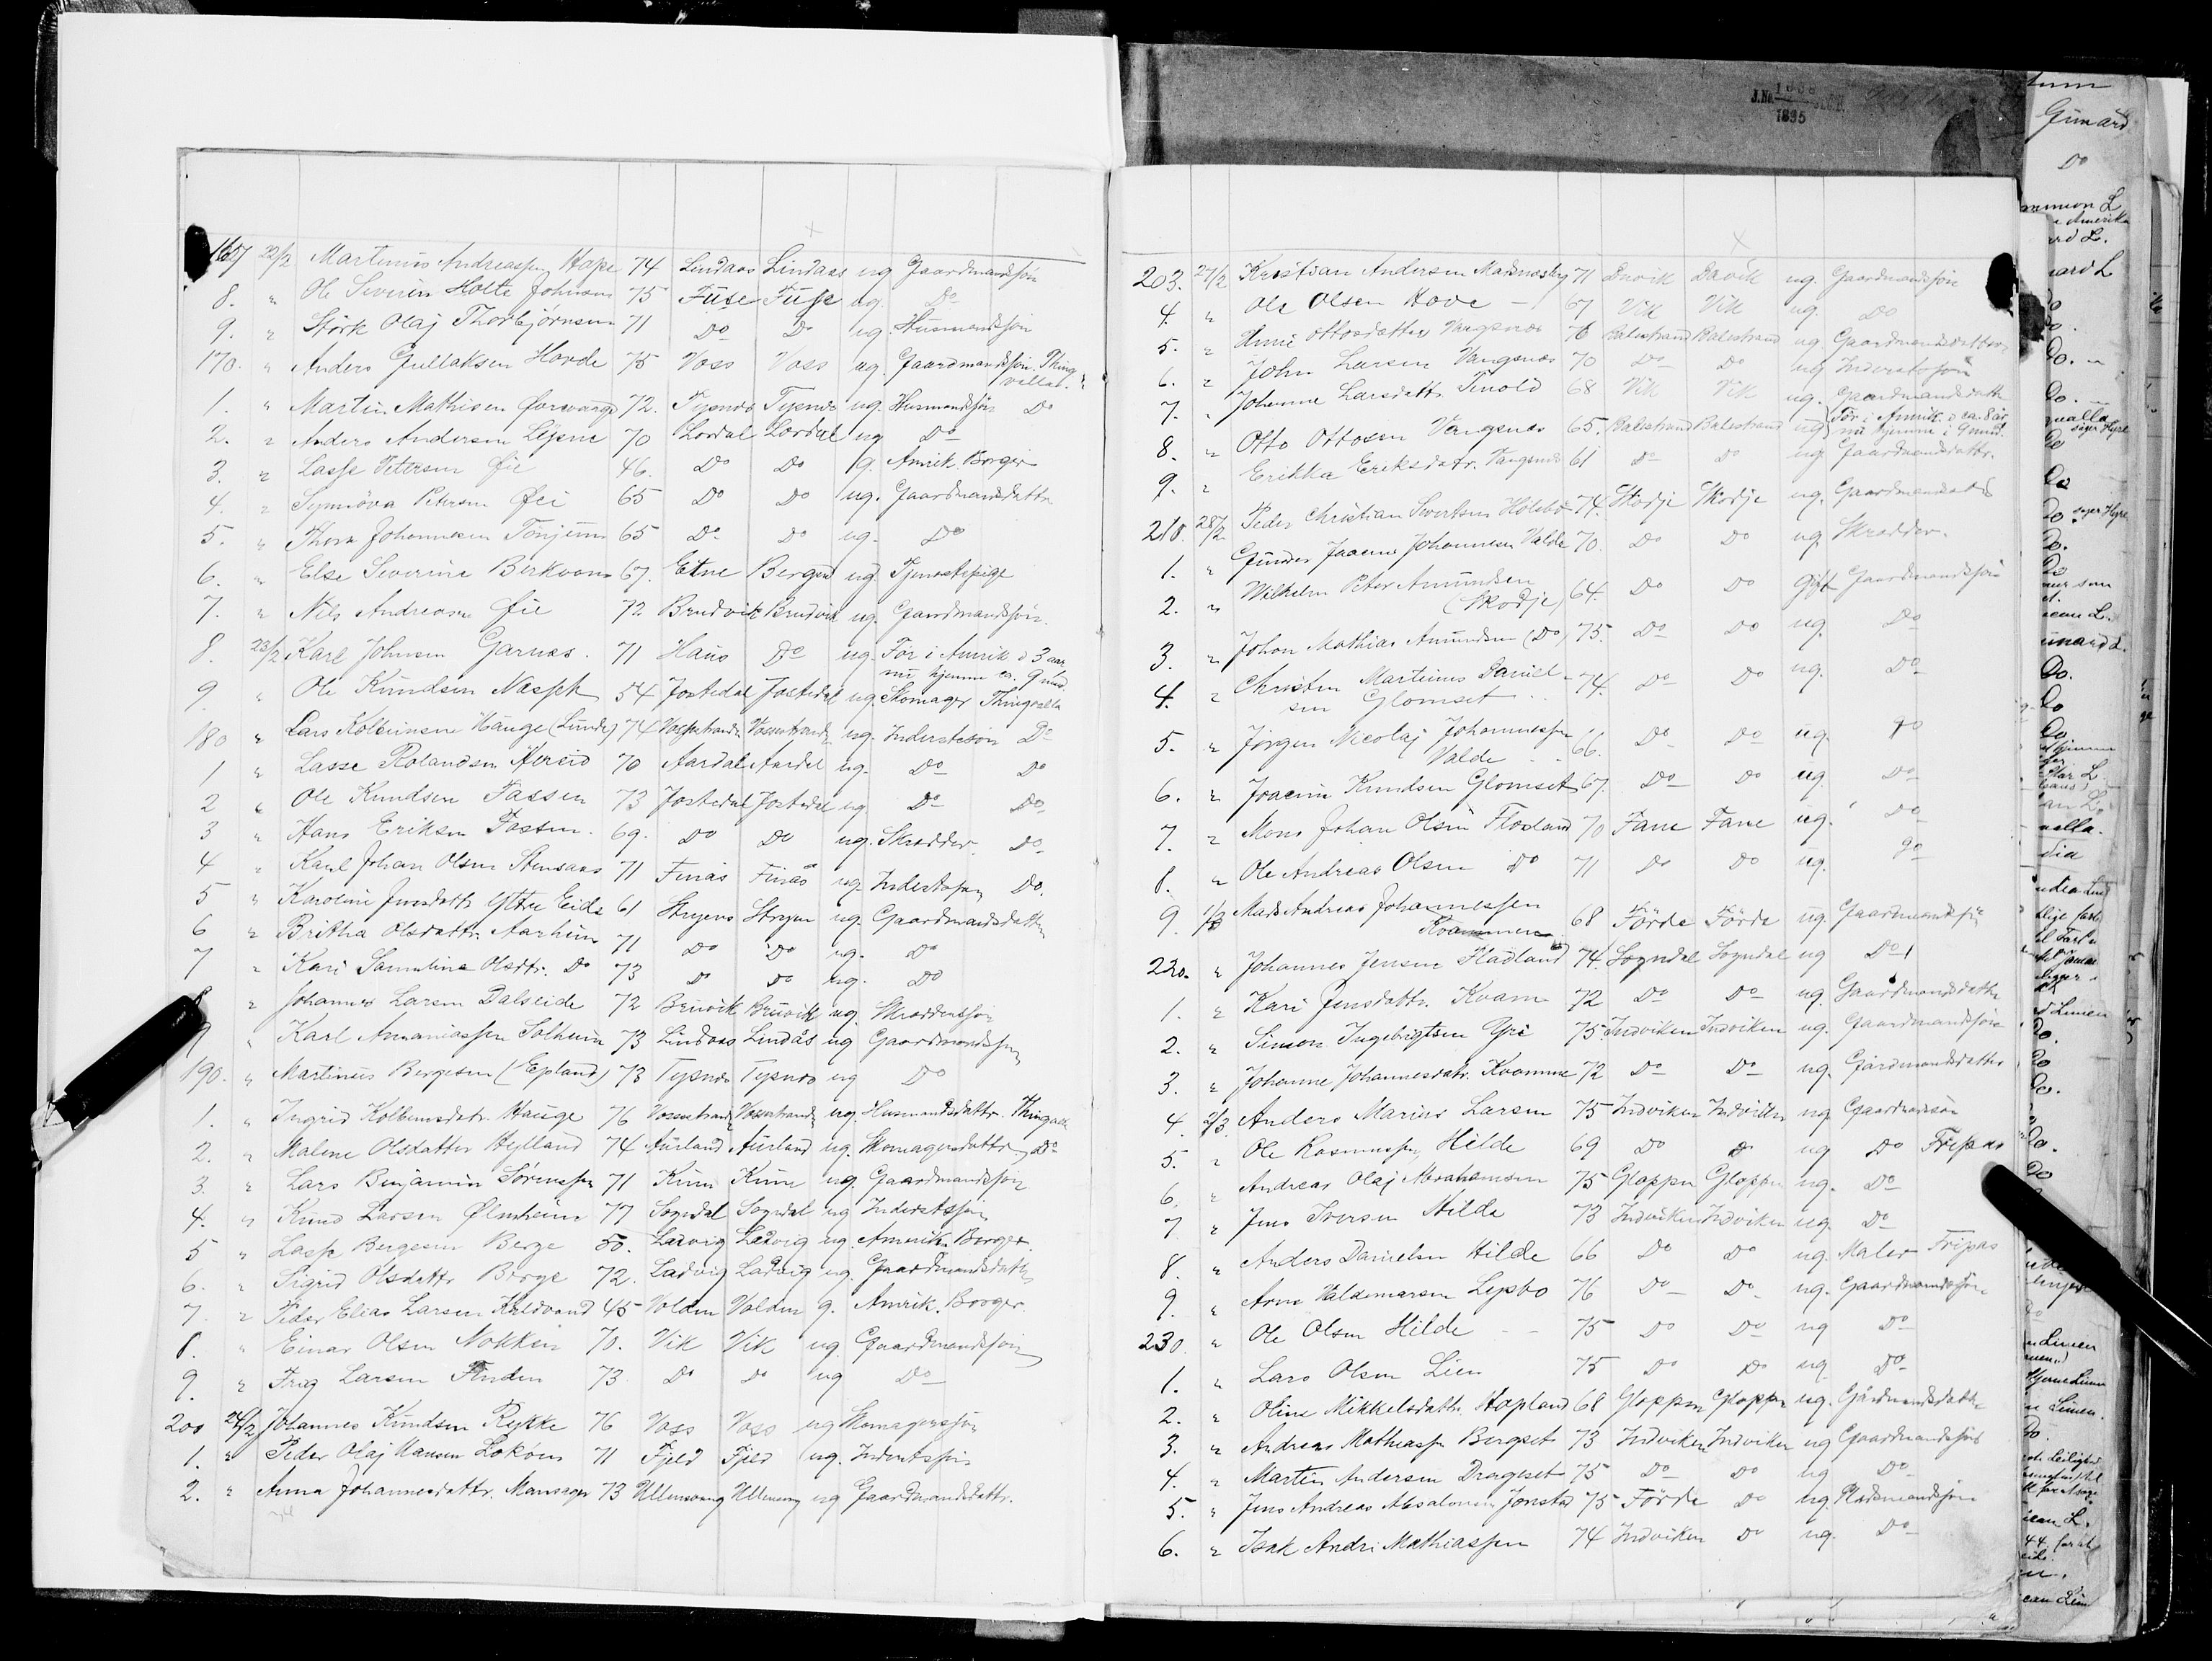 167 22/2 Martinus Andreassen Hope 74 Lindaas Lindaas ug Gaardmandsjön
8. " Ole Severin Holte Johnsen 75 Fuse Fuse ug. Do
9. " Störk Olaj Thorbjörnsen 71 Do Do ug. Husmandsjön
170. " Anders Gullaksen Horde 75 Voss Voss ug. Gaardmandsjön. Thing
valla.
1. " Martin Mathisen 72. Tysnæs Tysnæs ug. Husmandsjön Do
2. " Anders Andersen 70 Lærdal Lærdal ug Do
3. " Lasse Petersen Øie 46. Do Do g. Amrik. Borger
4. " Synnöva Petersen Øei 65 Do Do ug. Gaardmandsdatter
5. " Thom Johannesen Tönjum 65 Do Do ug. Do
6. " Else Severine Birkvam 67. Etne Bergen ug. Tjenestepige
7. " Nels Andreasen Øie 72 Brudvik Brudvik ug. Gaardmandsjön.
8. 23/2 Karl Johnsen Garnæs. 71 Haus Do ug. För i Amrik i 3 aar,
nu hjemme ca. 9 md.
9. " Ole Knudsen 54 Jostedal Jostedal ug. Skomager Thingvalla
180 " Lars Kolbeinsen Hauge (Lunde) 74 Vossestrand Vossestrand ug. Inderstesön Do
1 " Lasse Rolandsen 70 Aardal Aardal ug. Do Do
2 " Ole Knudsen Fassen 73 Jostedal Jostedal ug Do Do
3 " Hans Eriksen Fassen. 69. Do Do ug. Skrædder Do
4 " Karl Johan Olsen Stensaas 71 Finås Finås ug. Inderstesön Do.
5 " Karoline Jensdatt. Ytre Eide 61 Stryen Stryen ug. Gaardmandsdatter
6 " Britha Olsdattr. Aarheim 71 Do Do ug. Do
7 " Kari Samuline Olsdtr. Do 73 Do Do ug. Do
" Johannes Larsen Dalseide 72 Bruvik Bruvik ug. Skræddersjön
9 " Karl Annaniassen Solheim 73 Lindaas Lindås ug Gaardmandsjön
190. " Martinus Bergesen (Epland) 73 Tysnæs Tysnæs ug Do
1. " Ingrid Kolbeinsdatr. Hauge 76 Vossestrand Vossestrand ug. Husmandsdattr. Thingvalla
2. " Malene Olsdatter Hylland 74 Aurland Aurland ug. Skomagersdattr Do
3. " Lars Benjamin Sørenssen 71 Kinn Kinn ug. Gaardmandsjön
4. " Knud Larsen Ølmheim 77 Sogndal Sogndal ug Inderstsjön
5 " Lasse Bergesen Berge 50. Ladvig Ladvig ug. Amerik. Borger.
6. " Sigrid Olsdattr Berge 72. Ladvig Ladvig ug. Gaardmandsdatter
7. " Peder Elias Larsen Kaldvand 45 Volden Volden g. Amrik. Borger.
8. " Einar Olsen Nokken 70. Vik Vik ug. Gaardmandsjön
9. " Larsen Finden 73 Do Do ug Do
200 24/2 Johannes Knudsen Rykke 76 Voss Voss ug Skomagersjön
1. " Peder Olaj Hansen Loköen 71 Fjeld Fjeld ug. Inderstsjön
2. " Anna Johannesdattr. Mansager 73 Ullensvang Ullensvang ug Gaardmandsdattr.
J.No. 1895
203. 27/2 Kristian Andersen 71 Davik Davik ug. Gaardmandsjön
4. " Ole Olsen Hove - 67 Vik Vik ug. Do
5. " Ottosdatter Vangsnæs 76 Balestrand Balestrand ug. Gaardmandsdatter
6. " John Larsen Vangsnæs 70 Do Do ug Inderstsjön
7. " Johanne Larsdattr. Tenold 68 Vik Vik ug. Gaardmandsdattr
8. " Otto Ottosen Vangsnæs 65. Balestrand Balestrand ug För i Amerik. i ca. 8 år
nu hjemme i 9 mnd.
9. " Erikka Eriksdatr. Vangsnæs 61 Do Do ug Gaardmandsdattr.
210. 28/2 Peder Christian Sivertsen Holebø 74. Skodje Skodje ug. Gaardmandsjön
1. " Gunder Joacim Johannesen Valde 70. Do Do ug Skrædder.
2. " Wilhelm Peter Amundsen
(Skodje) 64. Do Do gift Gaardmandsjön
3. " Johan Mathias Amundsen (Do) 75. Do Do ug. Do
4. " Christen Martinus Daniel-
sen Glomset 74. Do Do ug. Do
5. " Jörgen Nicolaj Johannessen
Valde 66. Do Do ug. Do
6. " Joacim Knudsen Glomset 67. Do Do ug. Do
7. " Mons Johan Olsen Flodland 70 Fane Fane ug. Do
8. " Ole Andreas Olsen Do 71 Do Do ug. Do
9. 1/3 Mads Andreas Johannessen
Kvammen 68 Förde Förde ug. Gaardmandsjön
220. " Johannes Jensen Fladland 74. Sogndal Sogndal ug Do
1. " Kari Jensdattr. Kvam 72 Do Do ug. Gaardmandsdattr
2. " Simon Ingebrigtsen Yri 75 Indviken Indviken ug. Gaardmandsjön
3. " Johanne Johannesdatr. Kvamme 72 Do Do ug. Gårdmandsdatter
4. 2/3. Anders Marius Larsen 75 Indviken Indviken ug. Gaardmandsön
5. " Ole Rasmussen Hilde 69 Do Do ug Do Fripas
6. " Andreas Olaj Abrahamsen 75 Gloppen Gloppen ug. Do
7. " Jens Iversen Hilde 73 Indviken Indviken ug. Do
8. " Anders Danielsen Hilde 66 Do Do ug. Maler Fripas
9. " Arne Valdemarsen Lepsbo 76 Do Do ug. Gaardmandsjön
230. " Ole Olsen Hilde 75 Do Do ug Do
1. " Lars Olsen Lien 75 Do Do ug Do
2. " Oline Mikkelsdattr. Hopland 68 Gloppen Gloppen ug. Gårdmandsdattr
3. " Andreas Mathiassen Bergset 73 Indviken Indviken ug Gaardmandsjön
4. " Martin Andersen Drageset 75 Do Do ug Do
5. " Jens Andreas Absalonsen Jonstad 75 Förde Do ug. Pladsmandsjön
6. " Isak Andri Mathiassen 74 Indviken Do ug. Do